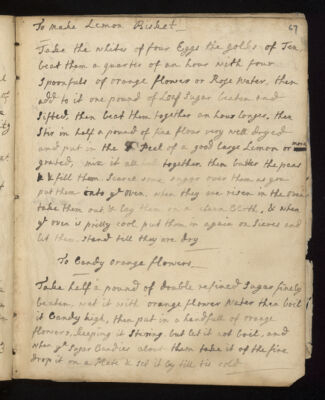 To make Lemon Bisket
67
Take the whites of four Eggs the yolks of Ten
beat them a quarter of an hour with four
Spoonfuls of orange flowers or Rose Water, then
add to it one pound of Loaf Sugar beaten and
Sifted, then beat them together an hour longer, then
Stir in half a pound of fine flour very well dryed
and put in the Peel of a good large Lemon or more
grated, mix it all together, then butter the pans
& fill them. Searce some sugar over them as you
put them into ye Oven. when they are risen in the Oven
take them out, & lay them on a clean Cloth, & when
ye oven is pretty cool put them in again on Sieves and
let them Stand till they are dry
To Candy orange flowers
Take half a pound of double refined Sugar finely
beaten, wet it with orange flower Water then boil
it Candy high, then put in a handfull of orange
flowers, keeping it Stiring, but let it not boil, and
when ye Sugar Candies about them take it of the fire
drop it on a Plate & set it by till tis cold